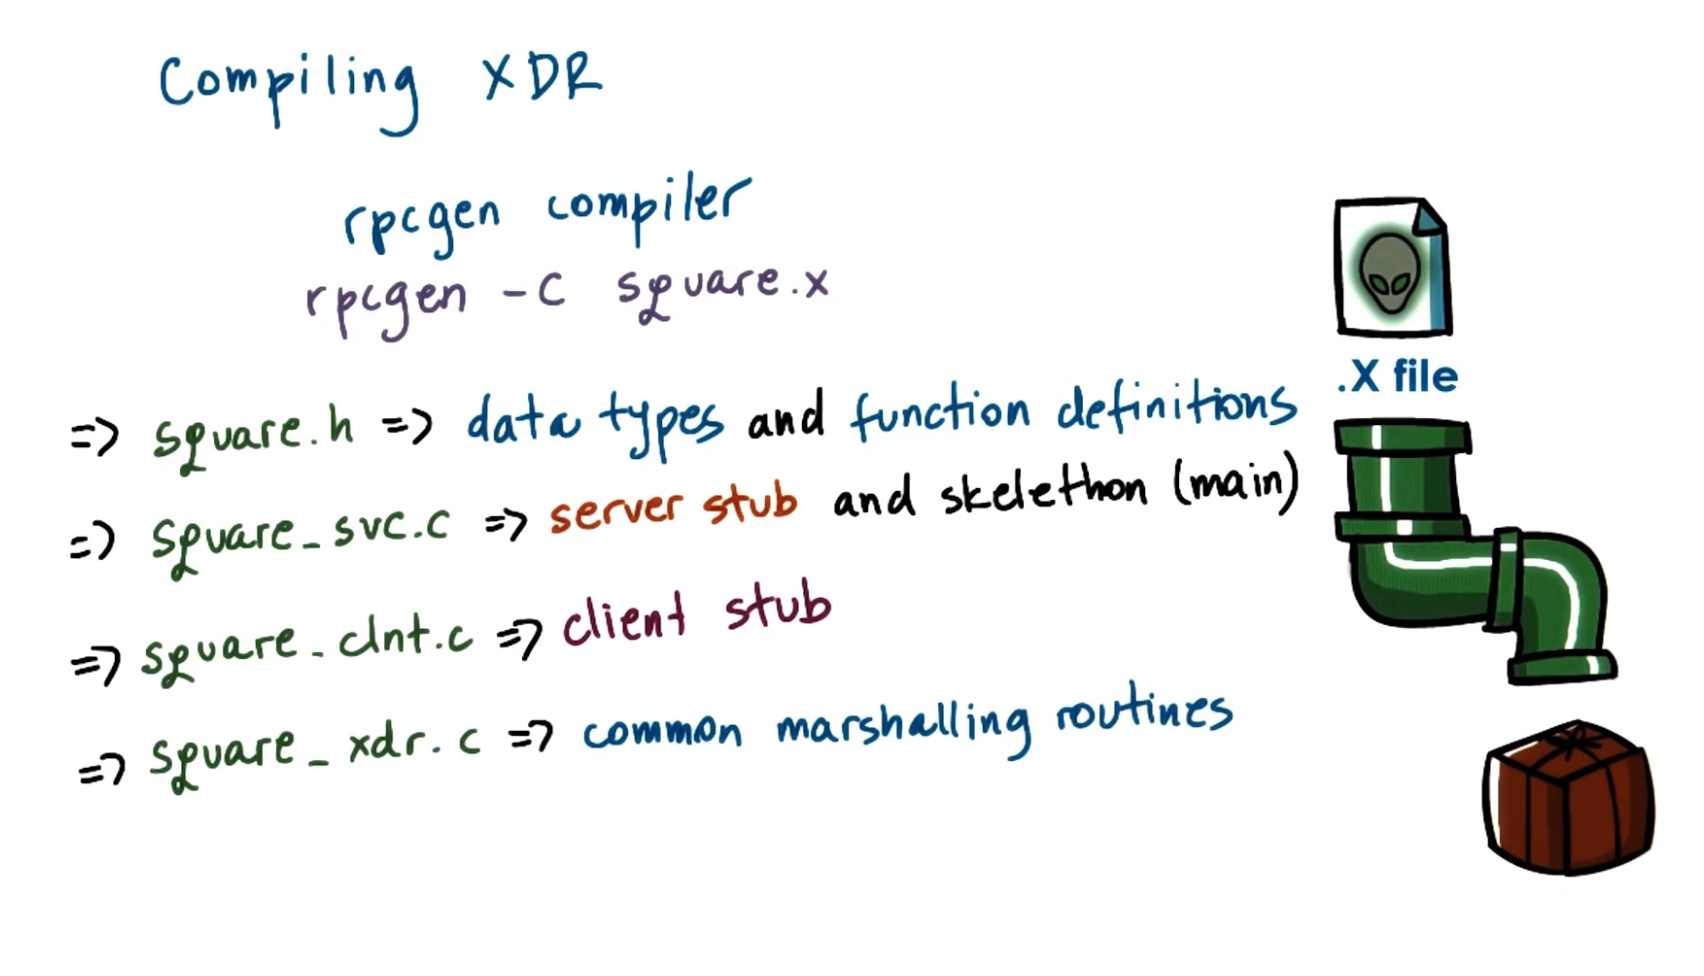 Compiling XDR
rpcgen compiler
rpcgen -C square.x
.X file
=> square.h => data types and function definitions
=> square_svc.c => server stub and skelethon (main)
=> square_clnt.c => client stub
=> square_xdr.c => common marshalling routines